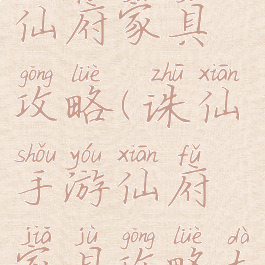 仙府家具
gōng lüè zhū xiān
攻略(诛仙
shǒu yóu xiān fǔ
手游仙府
jiā jù gōng lüè dà
家具攻略大